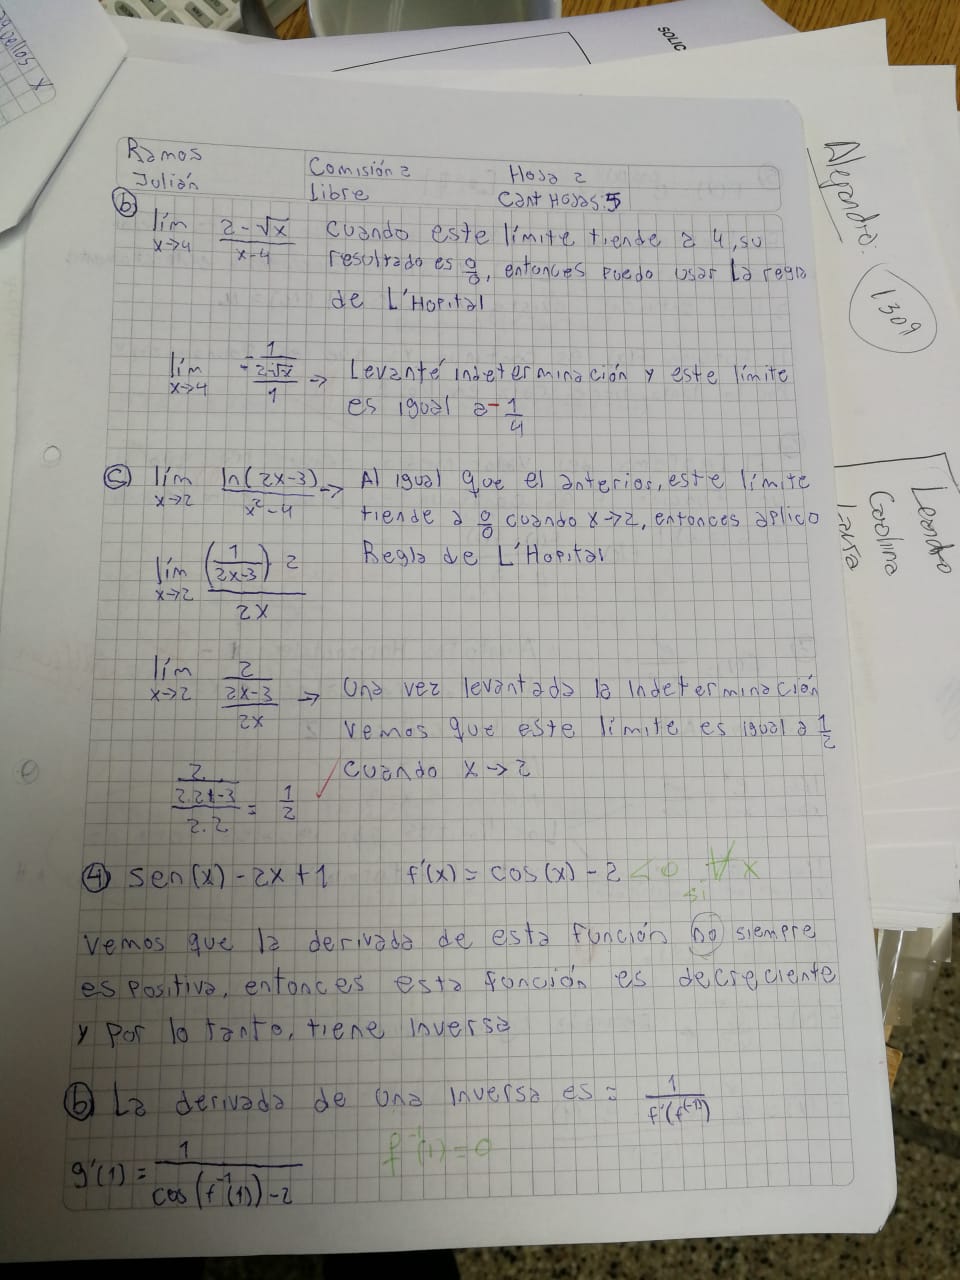 SOLIC
Ramos
Julián
Comisión 2
Libre
Hoja 2
Cant Hojas: 5
Alejandro:
1309
Leandro
Carolina
b) lím x→4 (2-√x)/(x-4) Cuando este límite tiende a 4, su
resultado es 0/0, entonces puedo usar la regla
de L'Hopital
lím x→4 (-1/(2√x))/1 → Levanté indeterminación y este límite
es igual a -1/4
c) lím x→2 ln(2x-3)/(x²-4) → Al igual que el anterior, este límite
tiende a 0/0 cuando x→2, entonces aplico
Regla de L'Hopital
lím x→2 ((1/(2x-3)) 2)/(2x)
lím x→2 (2/(2x-3))/(2x) → Una vez levantada la indeterminación
vemos que este límite es igual a 1/2
cuando x→2
(2/(2.2-3))/(2.2) = 1/2 ✓
4) sen(x) - 2x + 1 f'(x) = cos(x) - 2 < 0 ∀x
si
Vemos que la derivada de esta función no siempre
es positiva, entonces esta función es decreciente
y por lo tanto, tiene inversa
b) La derivada de una inversa es = 1/(f'(f^(-1)))
g'(1) = 1/(cos(f⁻¹(1))-2) f⁻¹(1) = 0